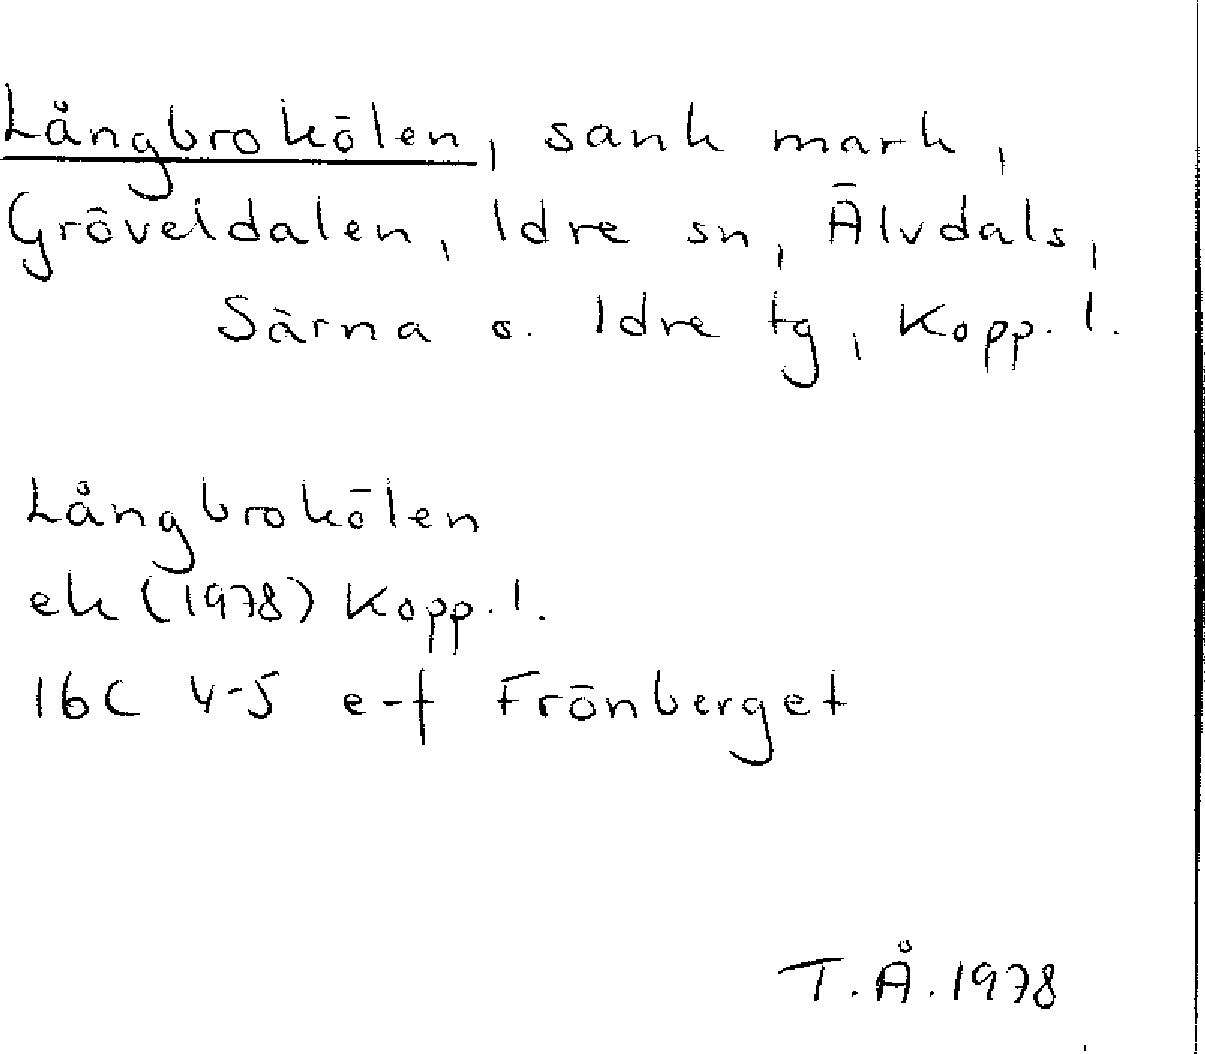 Långbrokölen, sank mark,
Gröveldalen, Idre sn, Älvdals,
Särna o. Idre tg, Kopp. l.
Långbrokölen
ek (1978) Kopp. l.
16C 4-5 e-f Frönberget
T.Å. 1978